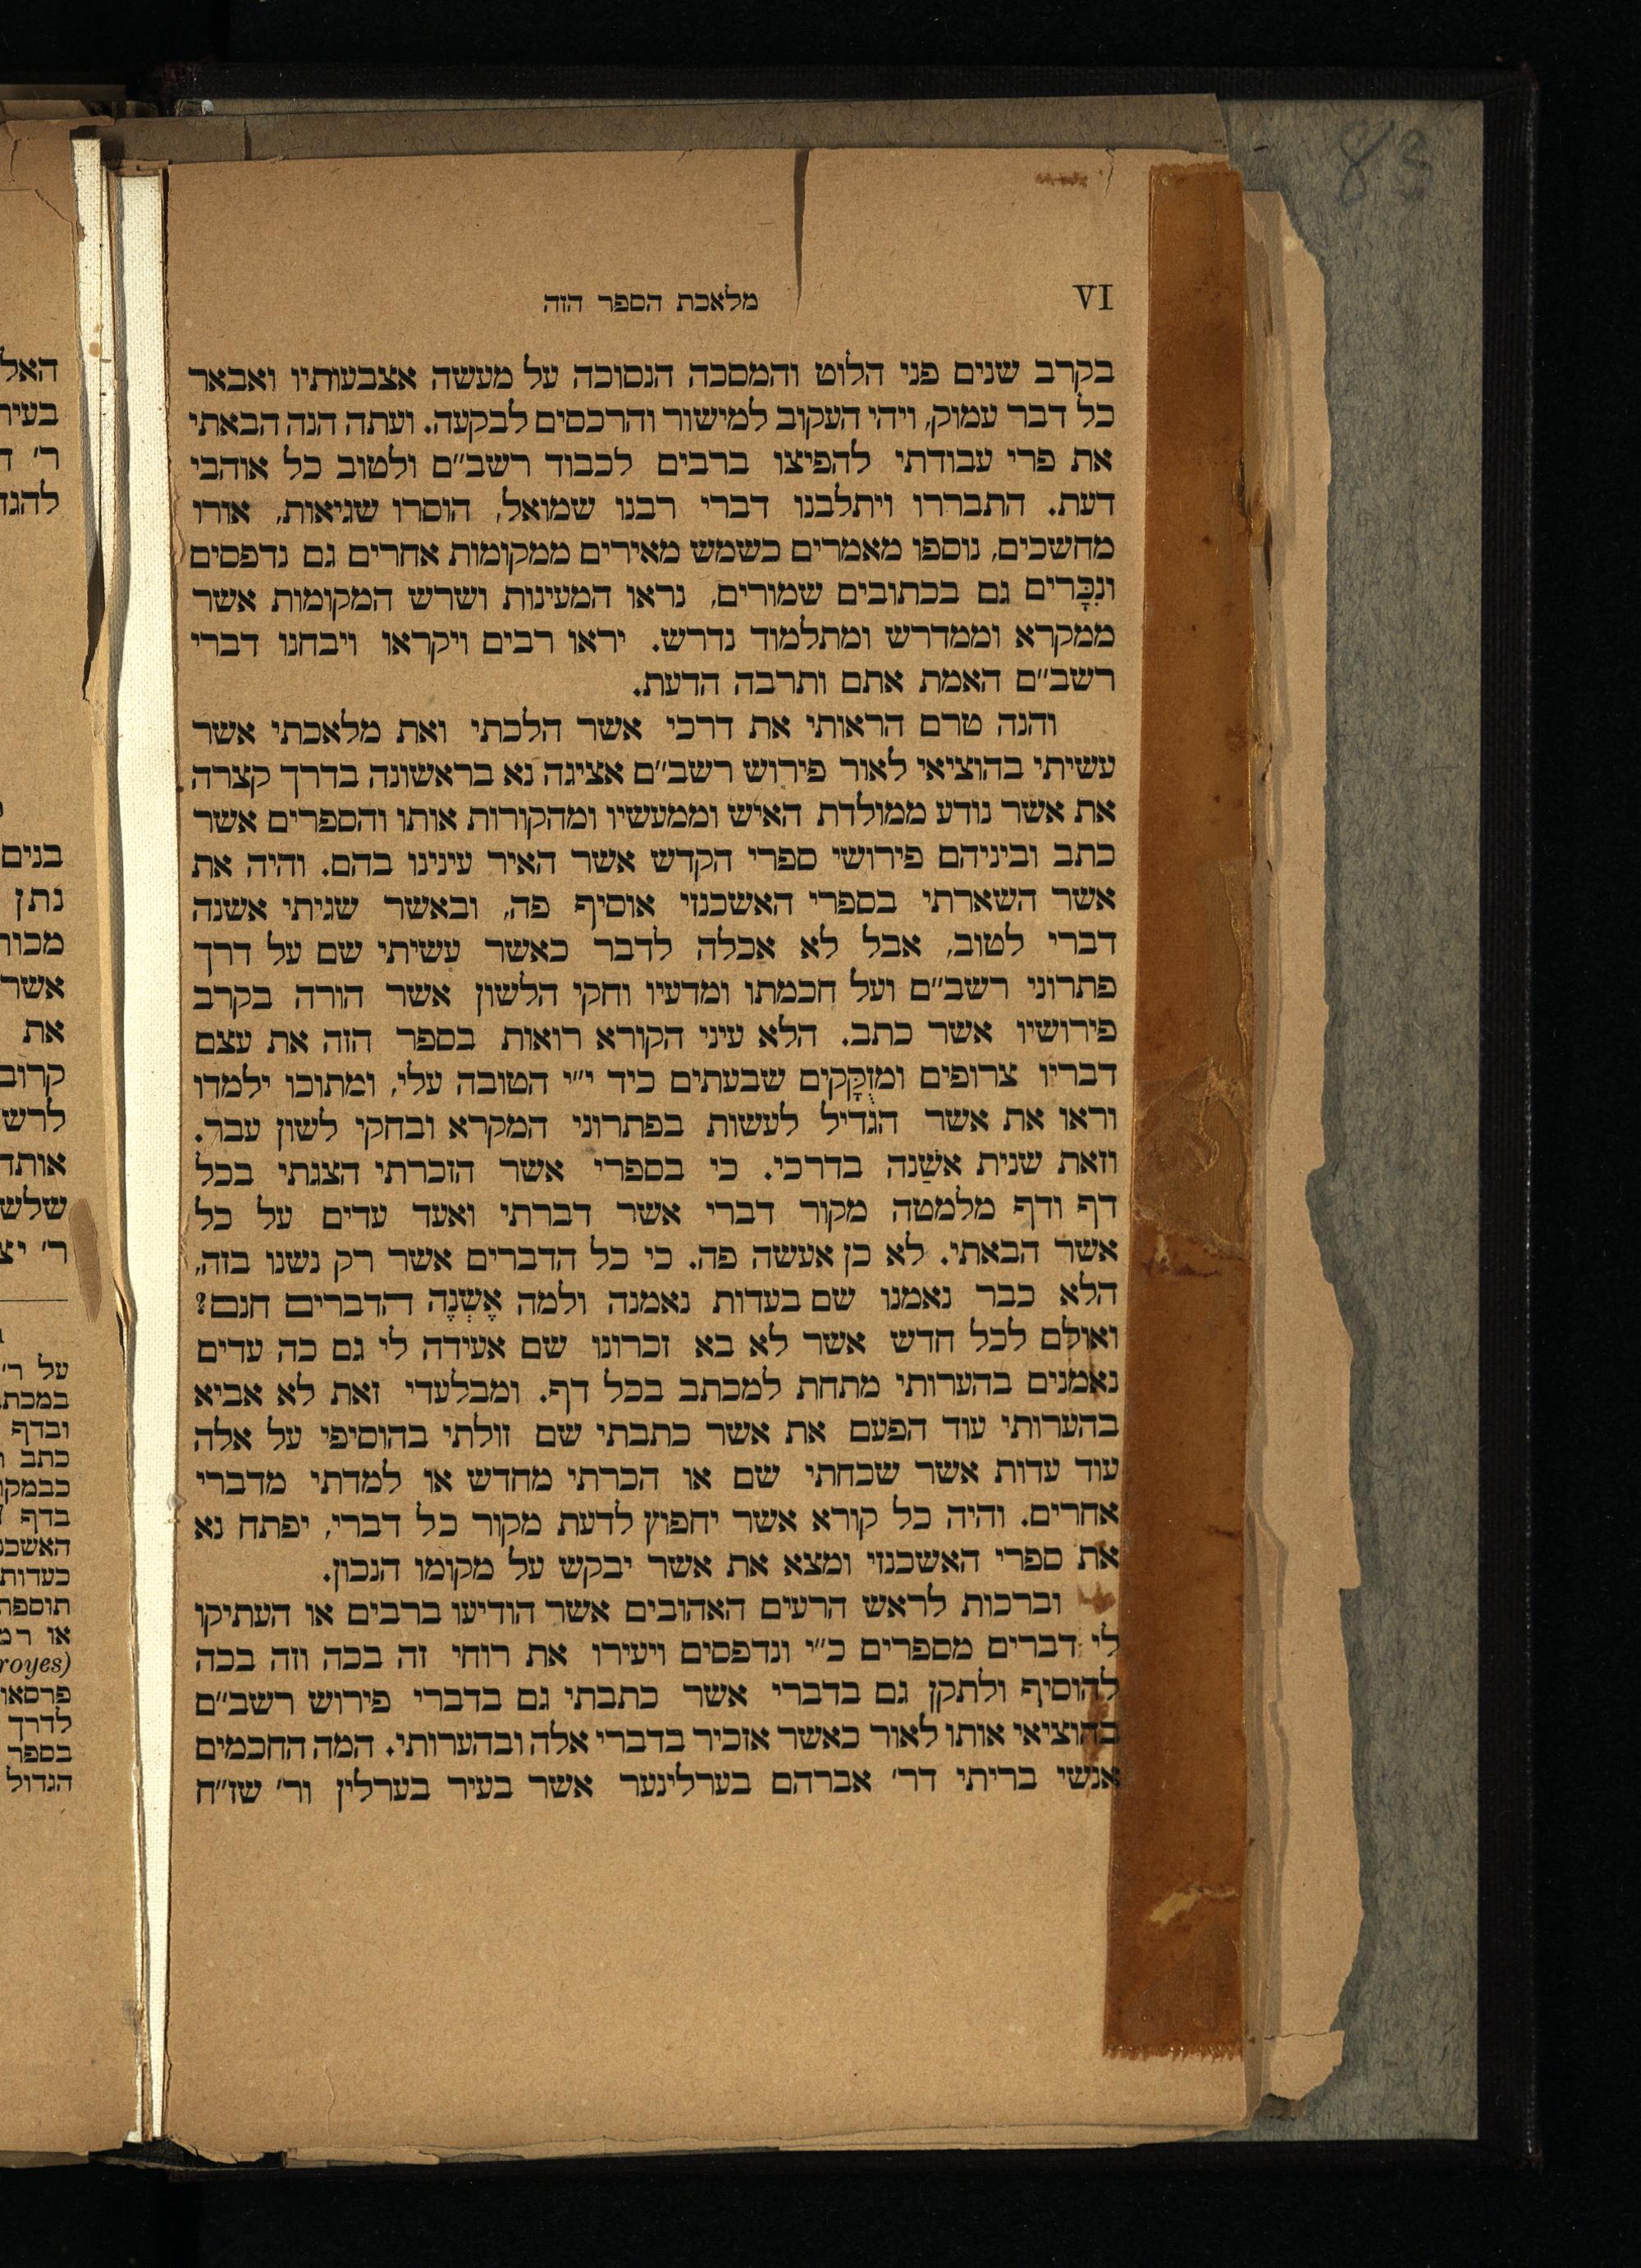 83
VI
מלאכת הספר הזה
בקרב שנים פני הלוט והמסכה הנסוכה על מעשה אצבעותיו ואבאר
כל דבר עמוק, ויהי העקוב למישור והרכסים לבקעה. ועתה הנה הבאתי
את פרי עבודתי להפיצו ברבים לכבוד רשב״ם ולטוב כל אוהבי
דעת. התבררו ויתלבנו דברי רבנו שמואל, הוסרו שגיאות, אורו
מחשכים, נוספו מאמרים כשמש מאירים ממקומות אחרים גם נדפסים
ונִכָּרים גם בכתובים שמורים, נראו המעינות ושרש המקומות אשר
ממקרא וממדרש ומתלמוד נדרש. יראו רבים ויקראו ויבחנו דברי
רשב״ם האמת אתם ותרבה הדעת.
והנה טרם הראותי את דרכי אשר הלכתי ואת מלאכתי אשר
עשיתי בהוציאי לאור פירוש רשב״ם אציגה נא בראשונה בדרך קצרה
את אשר נודע ממולדת האיש וממעשיו ומהקורות אותו והספרים אשר
כתב וביניהם פירושי ספרי הקדש אשר האיר עינינו בהם. והיה את
אשר השארתי בספרי האשכנזי אוסיף פה, ובאשר שגיתי אשנה
דברי לטוב, אבל לא אכלה לדבר כאשר עשיתי שם על דרך
פתרוני רשב״ם ועל חכמתו ומדעיו וחקי הלשון אשר הורה בקרב
פירושיו אשר כתב. הלא עיני הקורא רואות בספר הזה את עצם
דבריו צרופים ומזֻקָּקים שבעתים כיד י״י הטובה עלי, ומתוכו ילמדו
וראו את אשר הגדיל לעשות בפתרוני המקרא ובחקי לשון עבר.
וזאת שנית אשַׁנה בדרכי. כי בספרי אשר הזכרתי הצגתי בכל
דף ודף מלמטה מקור דברי אשר דברתי ואעד עדים על כל
אשר הבאתי. לא כן אעשה פה. כי כל הדברים אשר רק נשנו בזה,
הלא כבר נאמנו שם בעדות נאמנה ולמה אֶשְׁנֶה הדברים חנם?
ואולם לכל חדש אשר לא בא זכרונו שם אעידה לי גם כה עדים
נאמנים בהערותי מתחת למכתב בכל דף. ומבלעדי זאת לא אביא
בהערותי עוד הפעם את אשר כתבתי שם זולתי בהוסיפי על אלה
עוד עדות אשר שכחתי שם או הכרתי מחדש או למדתי מדברי
אחרים. והיה כל קורא אשר יחפוץ לדעת מקור כל דברי, יפתח נא
את ספרי האשכנזי ומצא את אשר יבקש על מקומו הנכון.
וברכות לראש הרעים האהובים אשר הודיעו ברבים או העתיקו
לי דברים מספרים כ״י ונדפסים ויעירו את רוחי זה בכה וזה בכה
להוסיף ולתקן גם בדברי אשר כתבתי גם בדברי פירוש רשב״ם
בהוציאי אותו לאור כאשר אזכיר בדברי אלה ובהערותי. המה החכמים
אנשי בריתי דר׳ אברהם בערלינער אשר בעיר בערלין ור׳ שז״ח
האל
בעיר
ר׳
להגד
בנים
נתן
מכור
אשר
את
קרוב
לרש
אותד
שלש
ר׳ יצ
על ר׳
במכת
ובדף
כתב
כבמקו
בדף
האשכנ
כעדות
תוספת
או רמ
royes)
פרסאו
לדרך
בספר
הגדול